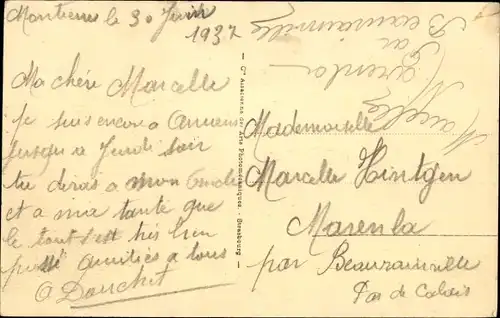 le 30
1937
Ma chère Marcelle
Je suis encore a Amiens
Jusqu a Jeudi soir
tu diras a mon Oncle
et a ma tante que
le tout s'est très bien
passé amitiés a tous
Douchet
Cie Alsacienne des Arts Photomécaniques - Strasbourg
Mademoiselle
Marcelle Hintgen
Marenla
par Beaurainville
Pas de Calais
Marcelle
Marenla
par
Beaurainville